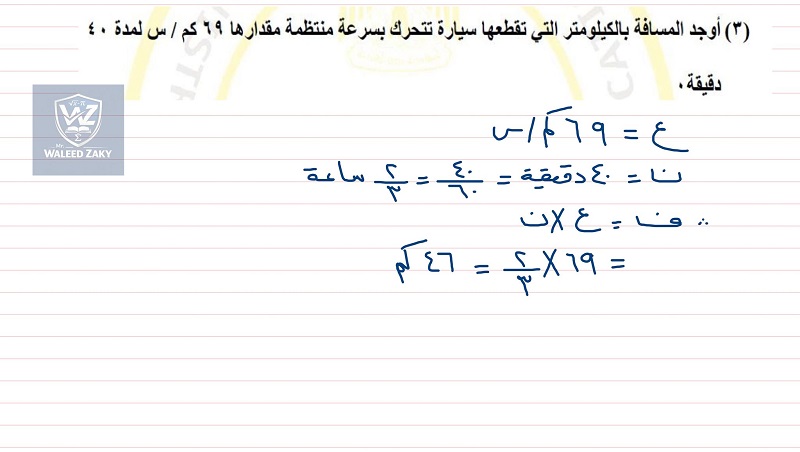 (٣) أوجد المسافة بالكيلومتر التي تقطعها سيارة تتحرك بسرعة منتظمة مقدارها ٦٩ كم / س لمدة ٤٠
دقيقة٠
ع = ٦٩ كم/س
ن = ٤٠ دقيقة = ٤٠/٦٠ = ٢/٣ ساعة
∴ ف = ع × ن
= ٦٩ × ٢/٣ = ٤٦ كم
WZ
Mr.
WALEED ZAKY